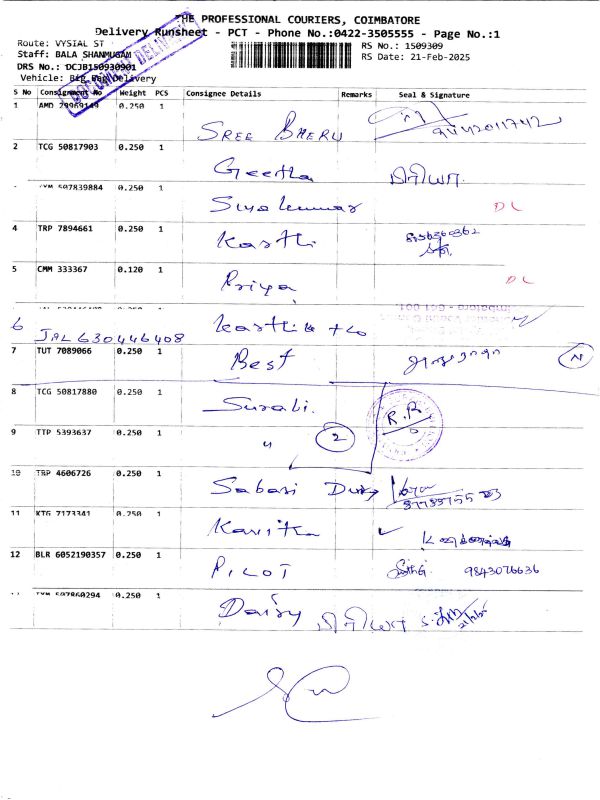 THE PROFESSIONAL COURIERS, COIMBATORE
Delivery Runsheet - PCT - Phone No.:0422-3505555 - Page No.:1
Route: VYSIAL ST
RS No.: 1509309
Staff: BALA SHANMUGAM
RS Date: 21-Feb-2025
DRS No.: DCJB150930901
Vehicle: Big Bag Delivery
S No Consignment No Weight PCS Consignee Details Remarks Seal & Signature
1 AMD 29969149 0.250 1 SREE BHERU
2 TCG 50817903 0.250 1 Geetha பிரியா
507839884 0.250 1 Sivakumar DL
4 TRP 7894661 0.250 1 Karthi
5 CMM 333367 0.120 1 Priya DL
6 JAL 630446408 Karthik + Co
7 TUT 7089066 0.250 1 Best N
8 TCG 50817880 0.250 1 Surabi. R.R
9 TTP 5393637 0.250 1 " 2
10 TRP 4606726 0.250 1 Sabari
11 KTG 7173341 0.250 1 Kavitha
12 BLR 6052190357 0.250 1 PILOT 9843076636
TXM 507860294 0.250 1 Daisy பிரியா